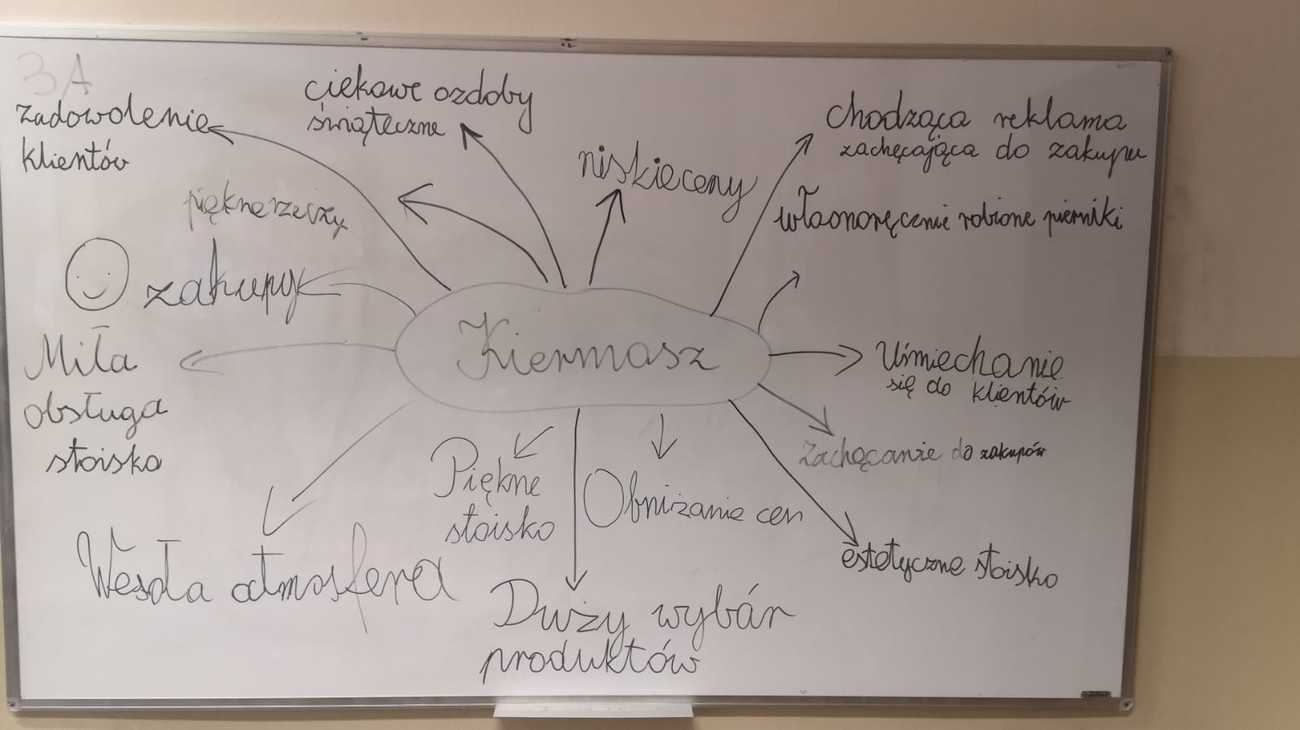 3A
zadowolenie
klientów
ciekawe ozdoby
świąteczne
niskie ceny
chodząca reklama
zachęcająca do zakupu
piękne rzeczy
własnoręcznie robione pierniki
zakupy
Kiermasz
Miła
obsługa
stoiska
Uśmiechanie
się do klientów
Zachęcanie do zakupów
Piękne
stoisko
Obniżanie cen
Wesoła atmosfera
estetyczne stoisko
Duży wybór
produktów